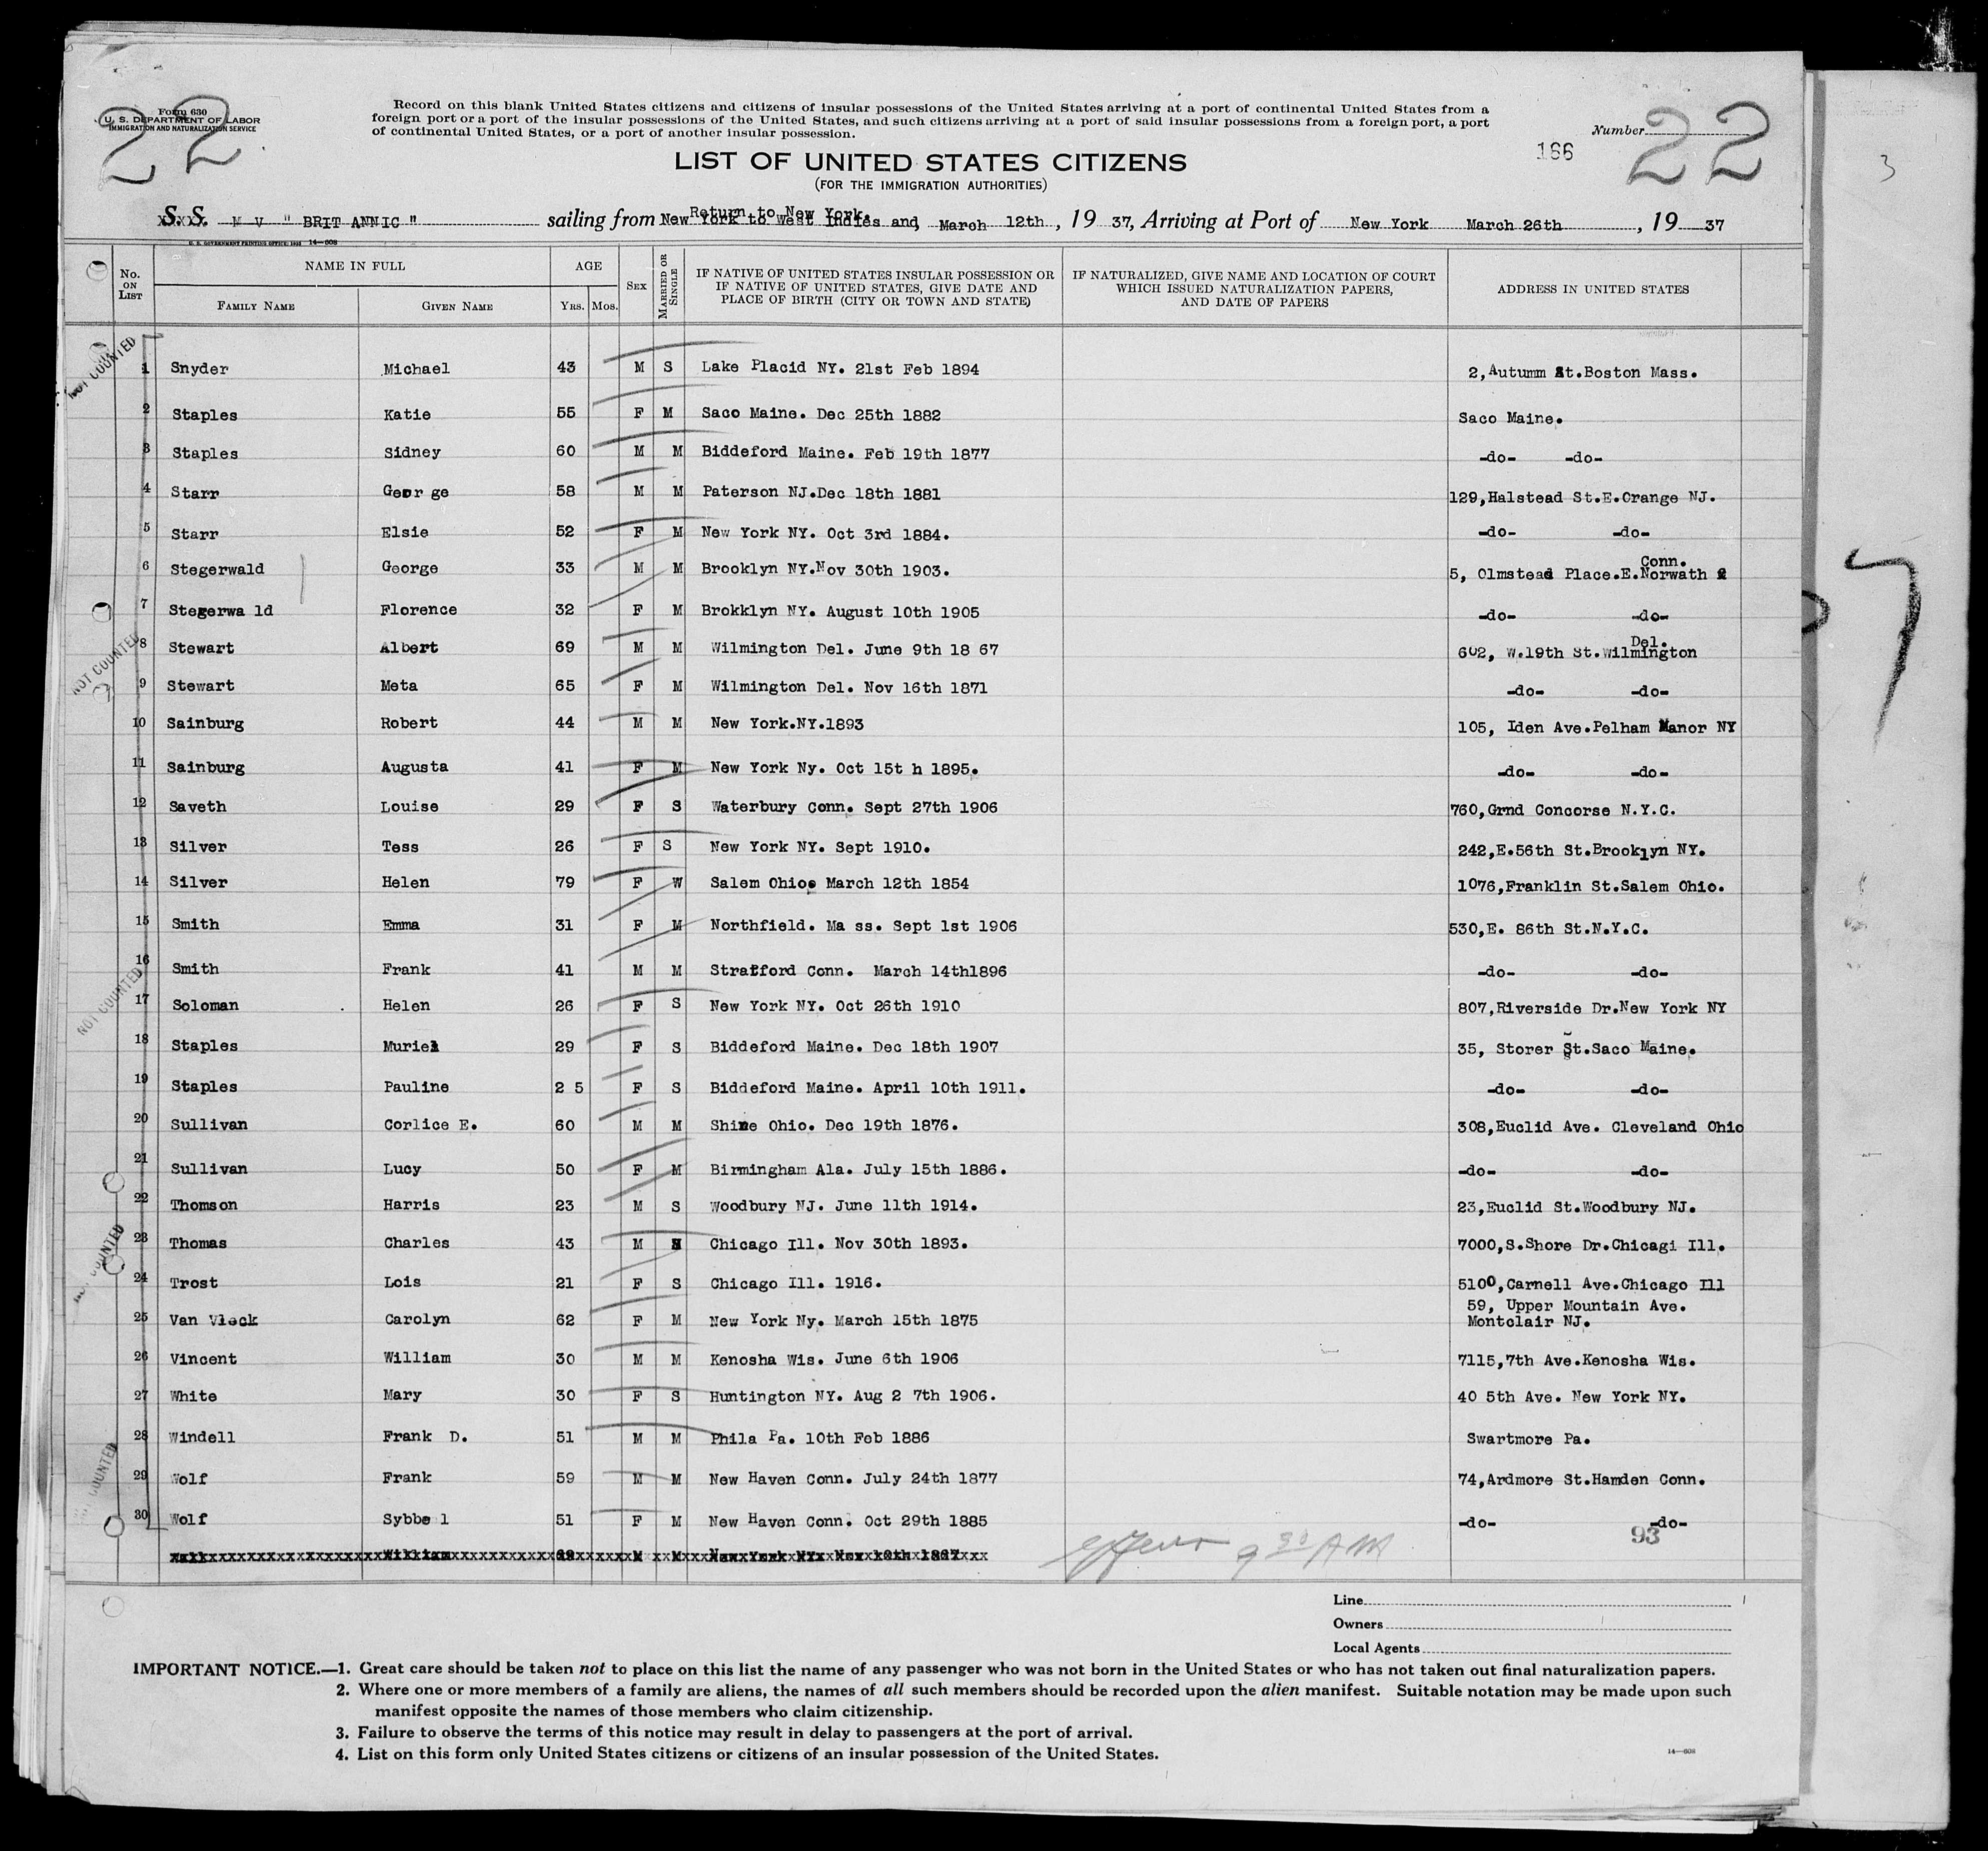 22
Form 630
U. S. DEPARTMENT OF LABOR
IMMIGRATION AND NATURALIZATION SERVICE
Record on this blank United States citizens and citizens of insular possessions of the United States arriving at a port of continental United States from a
foreign port or a port of the insular possessions of the United States, and such citizens arriving at a port of said insular possessions from a foreign port, a port
of continental United States, or a port of another insular possession.
Number 22
166
3
LIST OF UNITED STATES CITIZENS
(FOR THE IMMIGRATION AUTHORITIES)
Return to New York.
S. S. M V " BRIT ANNIC " sailing from New York to West Indies and, March 12th, 19 37, Arriving at Port of New York March 26th, 19 37
U. S. GOVERNMENT PRINTING OFFICE: 14—608
No. ON LIST NAME IN FULL AGE SEX MARRIED OR SINGLE IF NATIVE OF UNITED STATES INSULAR POSSESSION OR IF NATIVE OF UNITED STATES, GIVE DATE AND PLACE OF BIRTH (CITY OR TOWN AND STATE) IF NATURALIZED, GIVE NAME AND LOCATION OF COURT WHICH ISSUED NATURALIZATION PAPERS, AND DATE OF PAPERS ADDRESS IN UNITED STATES
FAMILY NAME GIVEN NAME YRS. MOS.
NOT COUNTED
1 Snyder Michael 43 M S Lake Placid NY. 21st Feb 1894 2,Autumm St.Boston Mass.
2 Staples Katie 55 F M Saco Maine. Dec 25th 1882 Saco Maine.
3 Staples Sidney 60 M M Biddeford Maine. Feb 19th 1877 -do- -do-
4 Starr Geor ge 58 M M Paterson NJ.Dec 18th 1881 129,Halstead St.E.Orange NJ.
5 Starr Elsie 52 F M New York NY. Oct 3rd 1884. -do- -do-
Conn.
6 Stegerwald George 33 M M Brooklyn NY.Nov 30th 1903. 5, Olmstead Place.E.Norwath
7 Stegerwa ld Florence 32 F M Brokklyn NY. August 10th 1905 -do- -do-
NOT COUNTED
Del.
8 Stewart Albert 69 M M Wilmington Del. June 9th 18 67 602, W.19th St.Wilmington
9 Stewart Meta 65 F M Wilmington Del. Nov 16th 1871 -do- -do-
10 Sainburg Robert 44 M M New York.NY.1893 105, Iden Ave.Pelham Manor NY
11 Sainburg Augusta 41 F M New York Ny. Oct 15t h 1895. -do- -do-
12 Saveth Louise 29 F S Waterbury Conn. Sept 27th 1906 760,Grnd Concorse N.Y.C.
13 Silver Tess 26 F S New York NY. Sept 1910. 242,E.56th St.Brooklyn NY.
14 Silver Helen 79 F W Salem Ohio. March 12th 1854 1076,Franklin St.Salem Ohio.
15 Smith Emma 31 F M Northfield. Ma ss. Sept 1st 1906 530,E. 86th St.N.Y.C.
16 Smith Frank 41 M M Strafford Conn. March 14th1896 -do- -do-
NOT COUNTED
17 Soloman Helen 26 F S New York NY. Oct 26th 1910 807,Riverside Dr.New York NY
18 Staples Muriel 29 F S Biddeford Maine. Dec 18th 1907 35, Storer St.Saco Maine.
19 Staples Pauline 2 5 F S Biddeford Maine. April 10th 1911. -do- -do-
20 Sullivan Corlice E. 60 M M Shine Ohio. Dec 19th 1876. 308,Euclid Ave. Cleveland Ohio
21 Sullivan Lucy 50 F M Birmingham Ala. July 15th 1886. -do- -do-
22 Thomson Harris 23 M S Woodbury NJ. June 11th 1914. 23,Euclid St.Woodbury NJ.
NOT COUNTED
23 Thomas Charles 43 M Chicago Ill. Nov 30th 1893. 7000,S.Shore Dr.Chicagi Ill.
24 Trost Lois 21 F S Chicago Ill. 1916. 5100,Carnell Ave.Chicago Ill
59, Upper Mountain Ave.
25 Van Vleck Carolyn 62 F M New York Ny. March 15th 1875 Montclair NJ.
26 Vincent William 30 M M Kenosha Wis. June 6th 1906 7115,7th Ave.Kenosha Wis.
27 White Mary 30 F S Huntington NY. Aug 2 7th 1906. 40 5th Ave. New York NY.
28 Windell Frank D. 51 M M Phila Pa. 10th Feb 1886 Swartmore Pa.
NOT COUNTED
29 Wolf Frank 59 M M New Haven Conn. July 24th 1877 74,Ardmore St.Hamden Conn.
30 Wolf Sybbe l 51 F M New Haven Conn. Oct 29th 1885 -do- -do-
93
William 69 M M New York NY. Nov 10th 1867
9 30 AM
Line
Owners
Local Agents
IMPORTANT NOTICE.—1. Great care should be taken not to place on this list the name of any passenger who was not born in the United States or who has not taken out final naturalization papers.
2. Where one or more members of a family are aliens, the names of all such members should be recorded upon the alien manifest. Suitable notation may be made upon such
manifest opposite the names of those members who claim citizenship.
3. Failure to observe the terms of this notice may result in delay to passengers at the port of arrival.
4. List on this form only United States citizens or citizens of an insular possession of the United States.
14—608